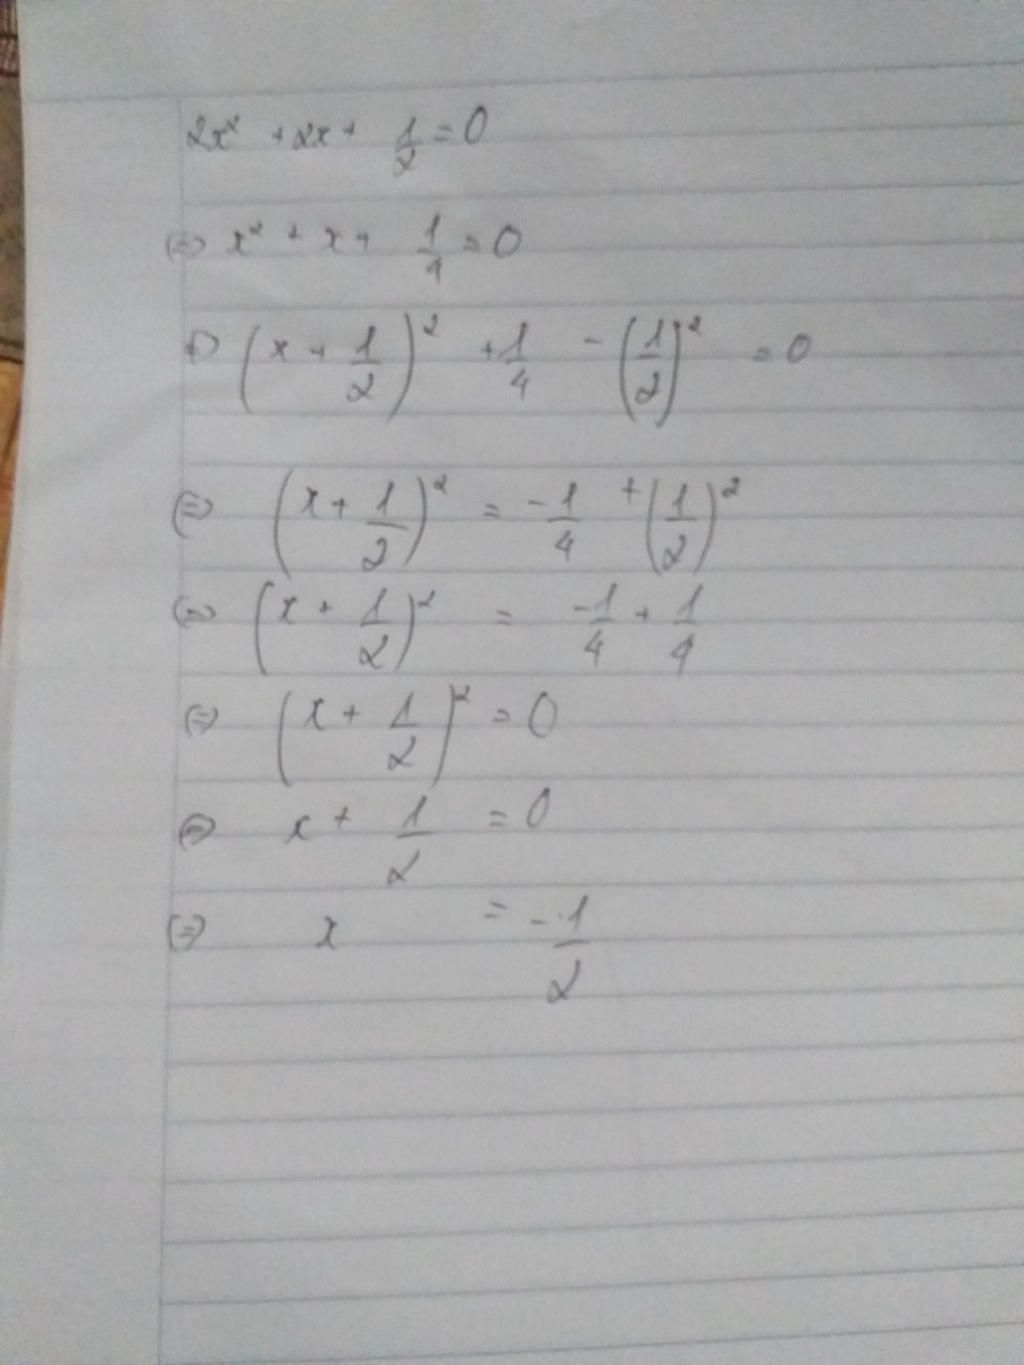 2x² + 2x + 1/2 = 0
(=) x² + x + 1/4 = 0
(=) (x + 1/2)² + 1/4 - (1/2)² = 0
(=) (x + 1/2)² = -1/4 + (1/2)²
(=) (x + 1/2)² = -1/4 + 1/4
(=) (x + 1/2)² = 0
(=) x + 1/2 = 0
(=) x = -1/2